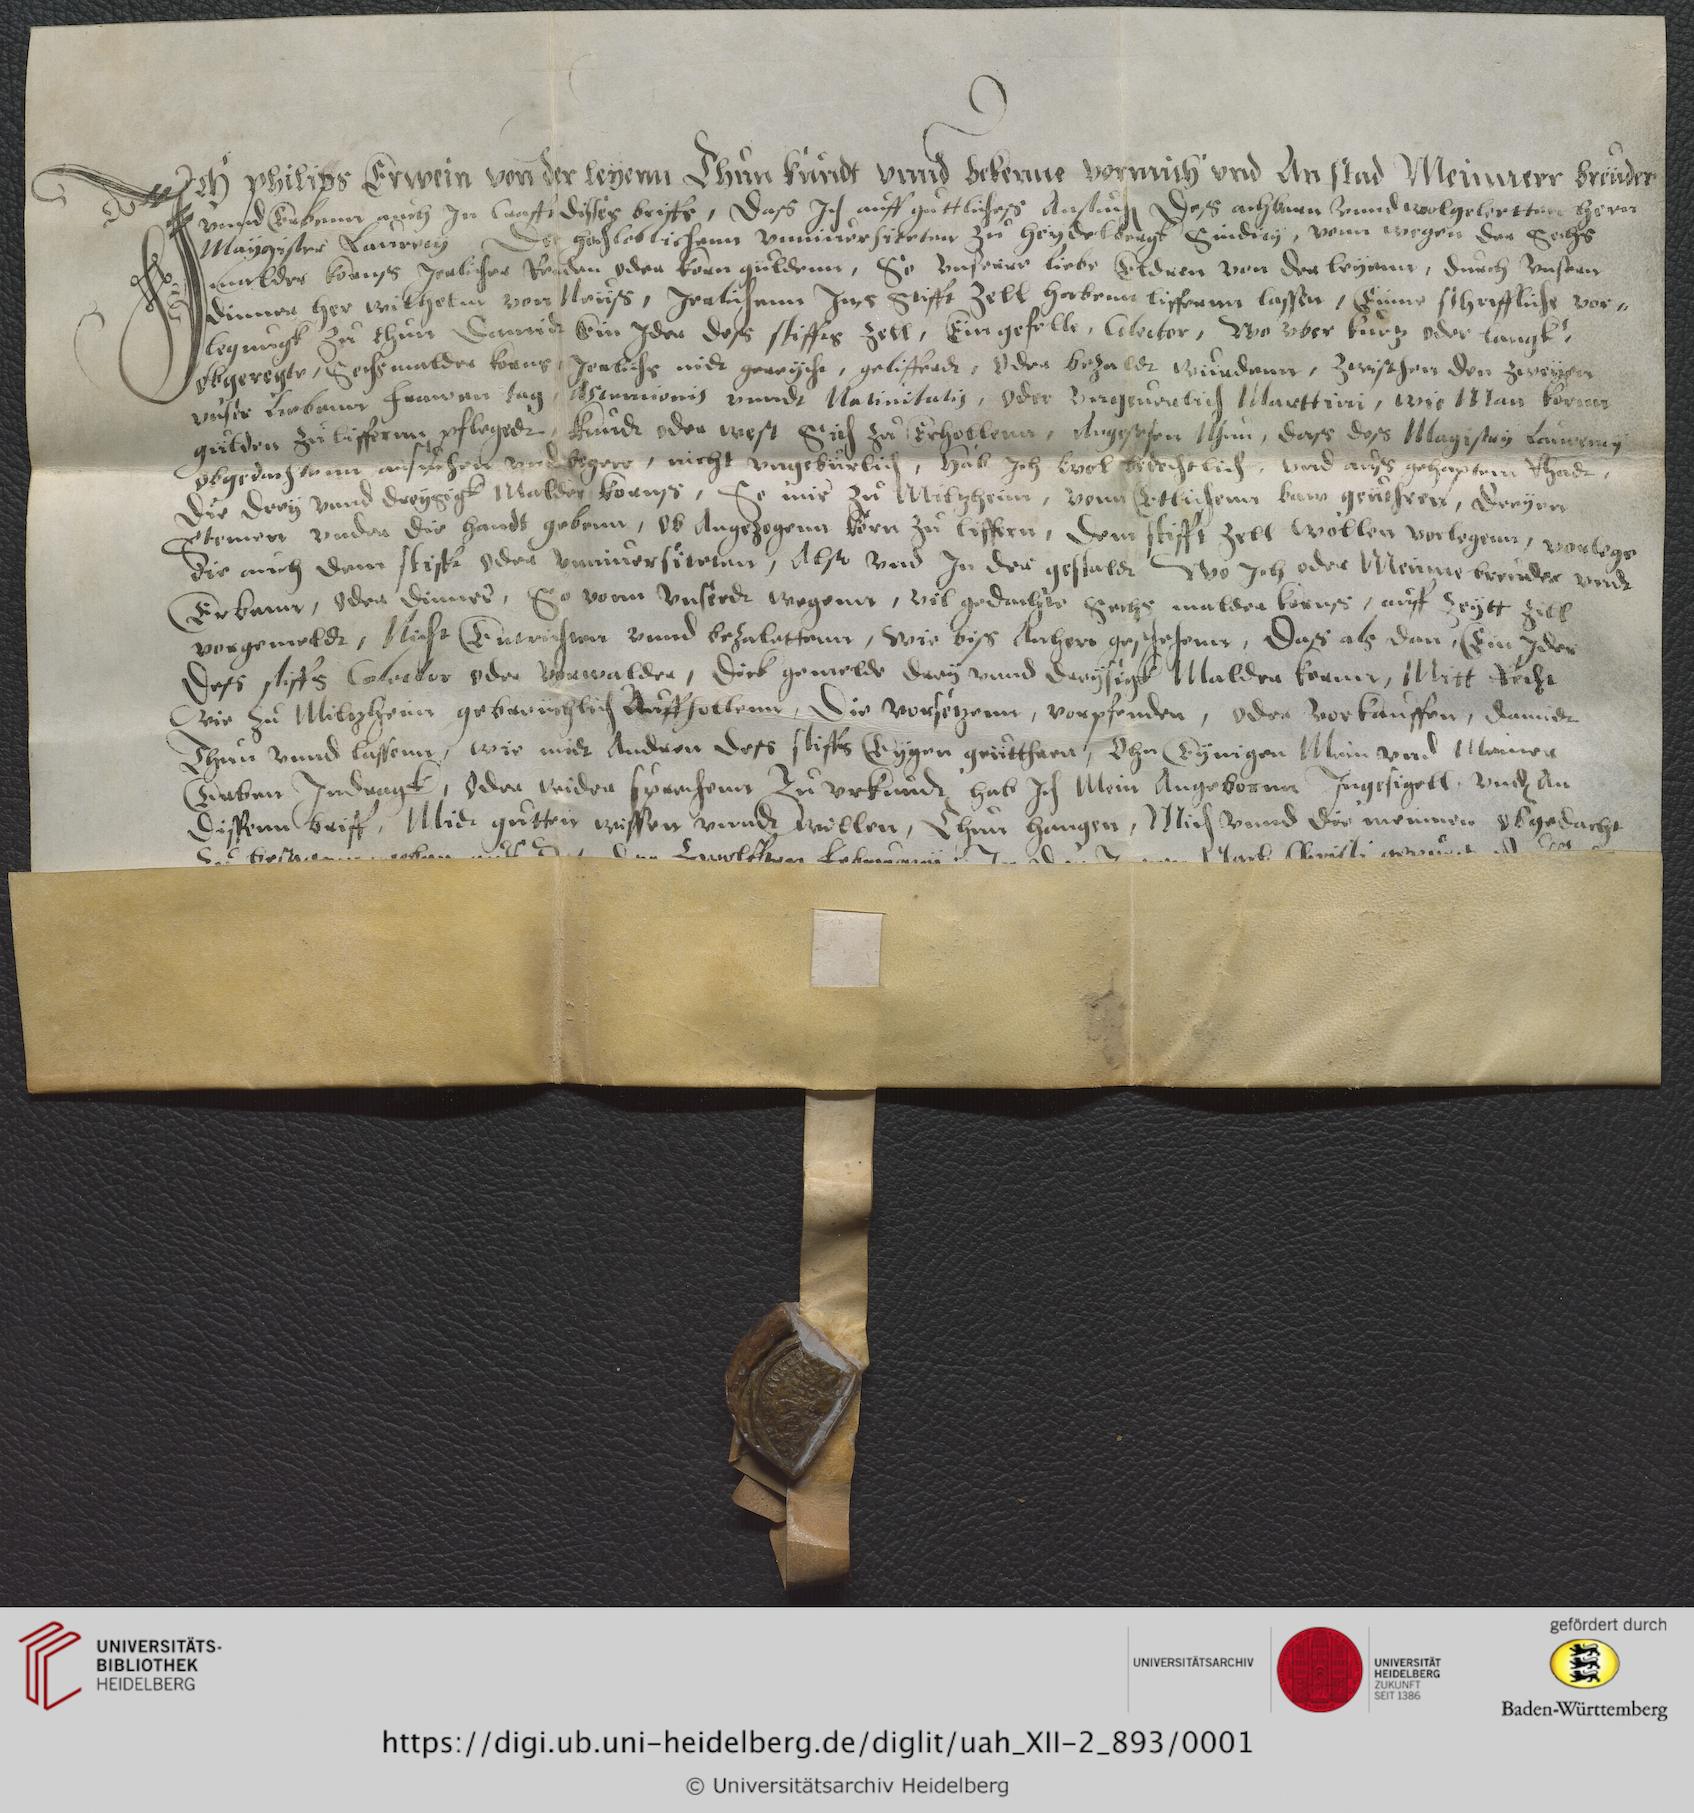 Ich Philips Erwein von der leyenn Thun kundt vnnd bekenne vor mich vnd An stad Meinnerr breuder
vnnd Erbenn auch In Crafft disses briffs, Dass Ich auff guttliches Ansuch Dess achbarn vnnd wolgelertten hern
Maygister Laurency Der hochloblichenn vnniuersiteten zu heydelbergk Sindicy, vonn wegen der Sechs
malder korns Jerlicher Renden oder korn guldenn, So vnserre liebe Eldren von der leyenn, durch vnsern
dinner her wilhelm von Neuss, Jerlichenn Ins Stifft Zell habenn lifferenn lassen, Einne schrifftliche vor„
legnugk zu thun Damidt Ein Jder dess stiffts Zell, Eingefelle, Colector, Wo vber kurtz oder langk,
obgeregte, Sechs malder korns, Jerlichs nidt gereycht, gelifferdt, oder bezaldt wurdenn, zwischen den zweyen
vnser liebenn frawen tag, Assumtionis vnndt Natiuitatis, oder vngeuerlich Marttini, wie Man korrn
gulden zu lifferenn pflegedt, kundt oder west Sich zu Erhollenn, Angesehen Nhun, dass dess Magistry Laurency
obgedachtenn ansuchen vnd begere, nicht vngeburlich, Hab Ich wol bedechtlich, vnd auss gehaptem Rhadt,
Die drey vnnd dreyssigk Malder korns, So mir zu Milzheim, vonn Ettlichenn baw geuehren, dreyen
Stemen vnder die handt gebenn, ob Angezogenn korn zu liffern, Dem stifft Zell wollen vorlegenn, vorlege
die auch dem stifft oder vnniuersiteten, Alss vnd In der gestaldt Wo Ich oder Meinne breuder vndt
Erbenn, oder dinner, So vonn vnserdt wegenn, vil gedachte Sechs malder korns, auff zeytt zill
vorgemeldt, Nicht Entrichten vnnd bezalettenn, Wie biss Anhero geschehenn, Dass als dan, Ein Jder
Dess stiffs Colector oder vorwalder, Dick gemelde drey vnnd dreyssigk Malder kornn, Mitt Recht
wie zu Milzheim gebreuchlich Auffhollenn, Die vorsetzenn, vorpfenden, oder vorkauffen, damidt
Thun vnnd lassenn, wie midt Andren dess stiffs Eygen guttheren, Ohn Eynigen Mein vnd Meiner
Erben Indragk, oder wider sprechenn Zu vrkundt, hab Ich Mein Angeborne Ingesigell vnden An
Dissenn briff, Midt gutten wissen vnndt willen, Thun hangen, Mich vnnd die meinnen obgedacht
UNIVERSITÄTS-
BIBLIOTHEK
HEIDELBERG
UNIVERSITÄTSARCHIV
UNIVERSITÄT
HEIDELBERG
ZUKUNFT
SEIT 1386
gefördert durch
Baden-Württemberg
https://digi.ub.uni-heidelberg.de/diglit/uah_XII-2_893/0001
© Universitätsarchiv Heidelberg